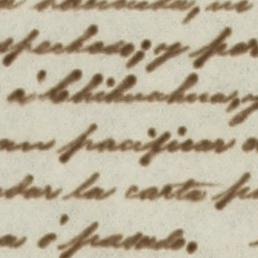 spechoso; y por
a' Chihuahua, y
an pacificar
dar la carta
a ó pasado.